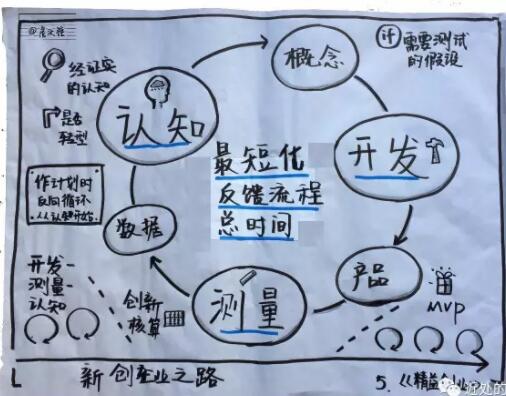 经证实
的认知
是否
转型
作计划时
反向循环
从认知开始
认知
概念
if 需要测试
的假设
开发
最短化
反馈流程
总时间
数据
测量
产品
MVP
创新
核算
开发-
测量-
认知
新创企业之路
5.《精益创业》